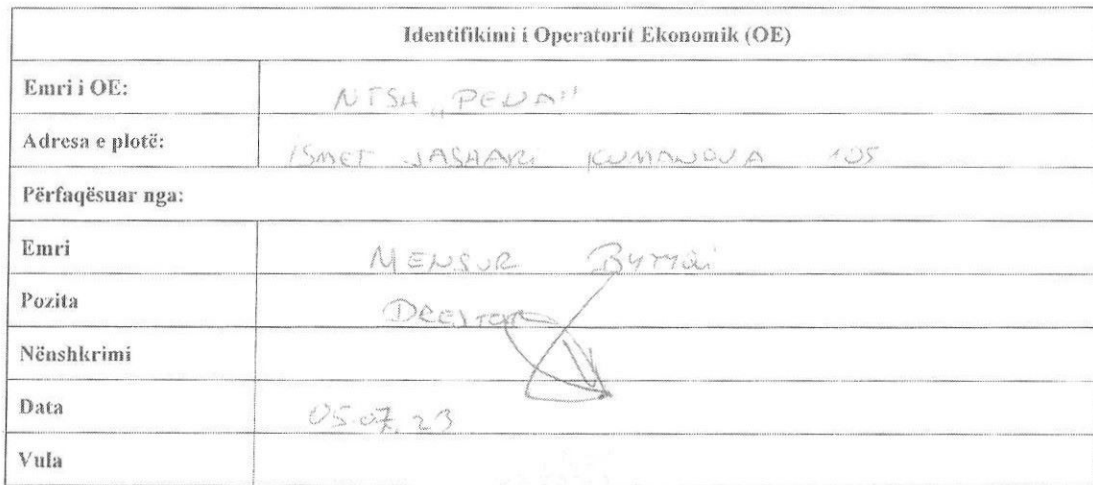 Identifikimi i Operatorit Ekonomik (OE)
Emri i OE: NTSH „PENDA"
Adresa e plotë: ISMET JASHARI KUMANOVA 105
Përfaqësuar nga:
Emri MENSUR BYTYQI
Pozita
Nënshkrimi
Data 05.07.23
Vula